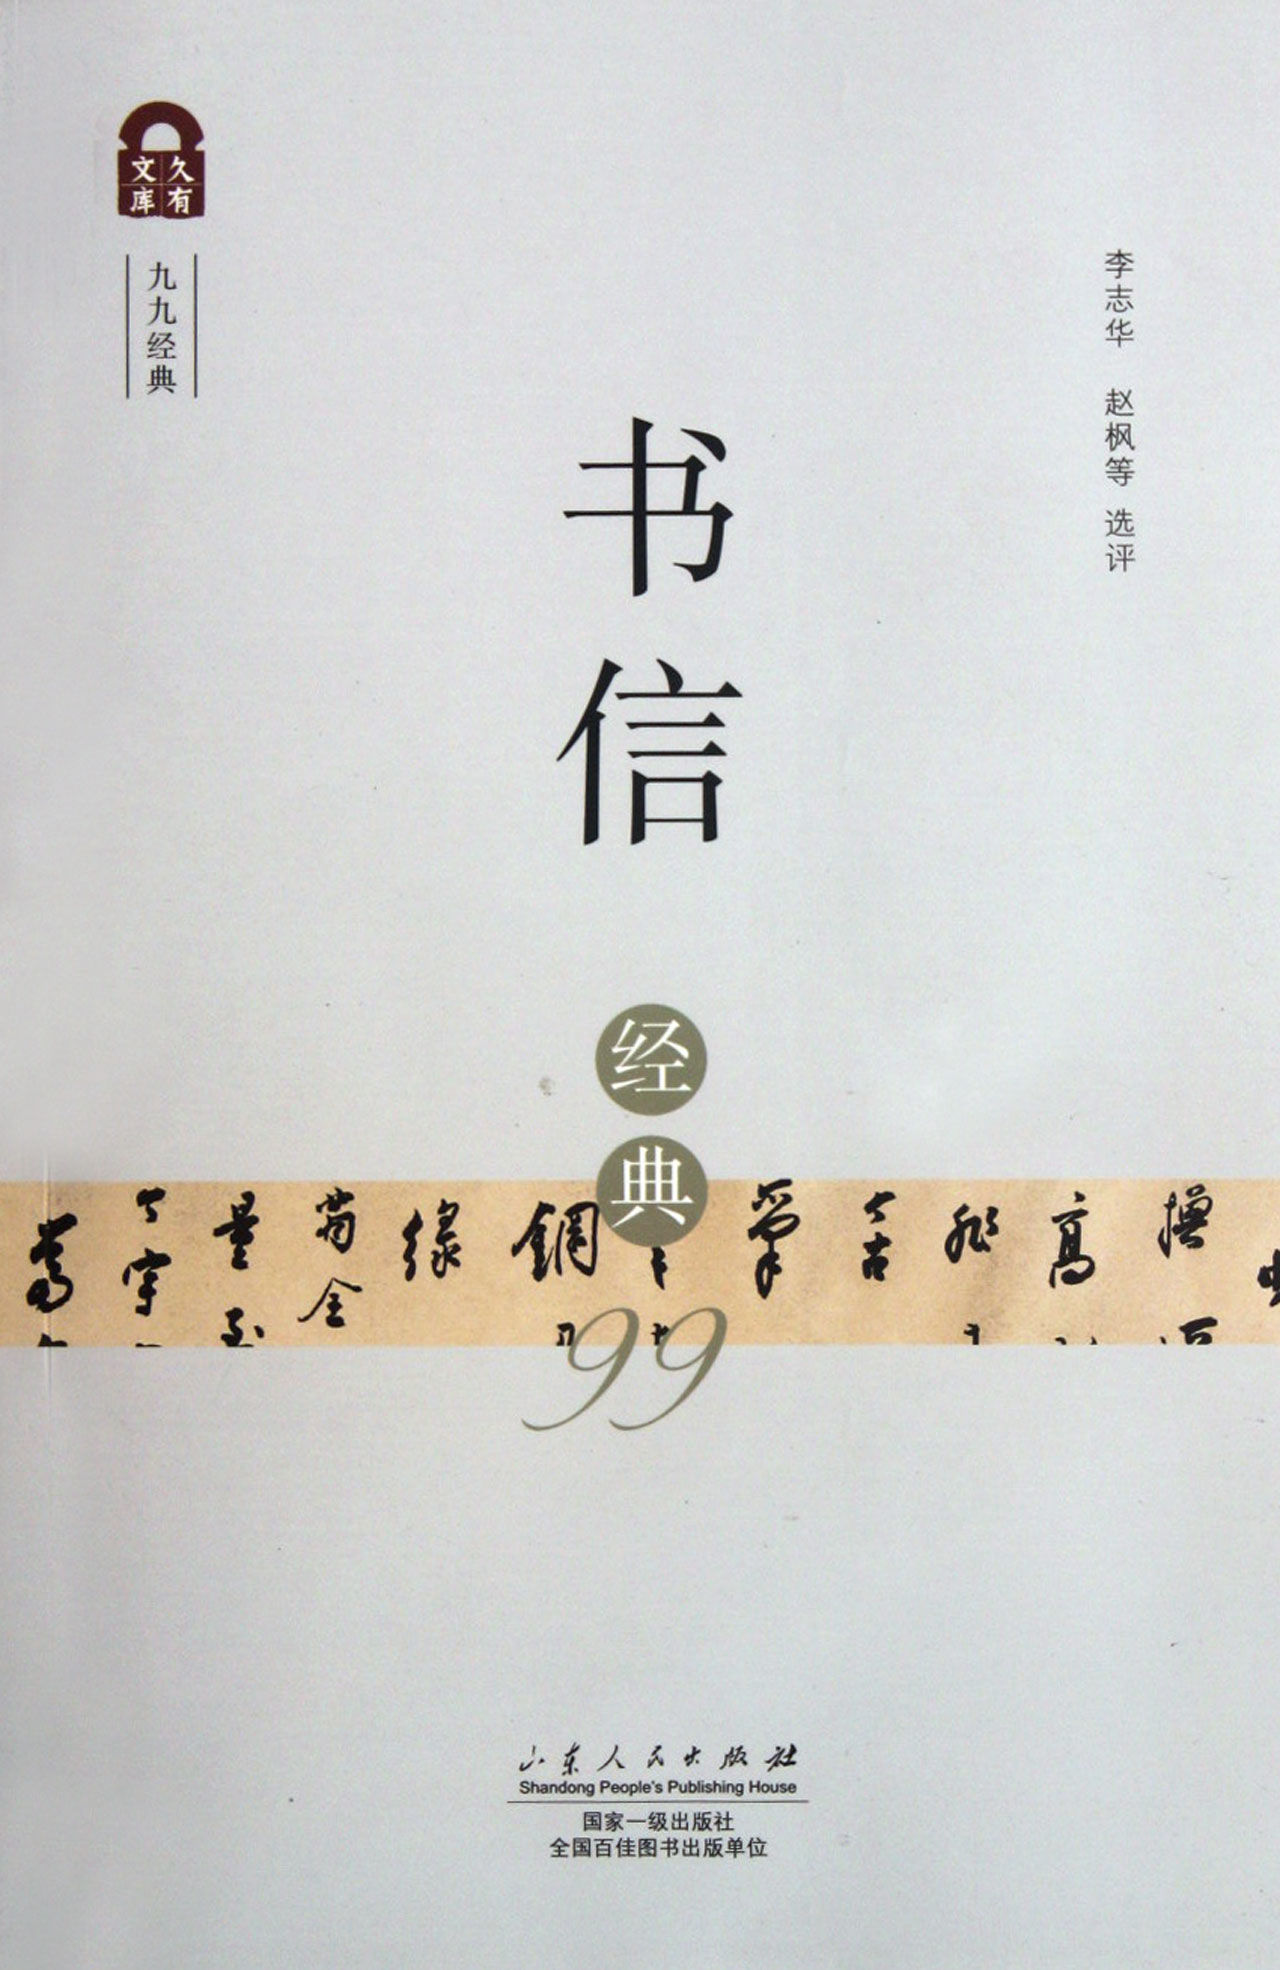 久有
文库
九九经典
李志华 赵枫等 选评
书信
经典
99
山东人民出版社
Shandong People's Publishing House
国家一级出版社
全国百佳图书出版单位